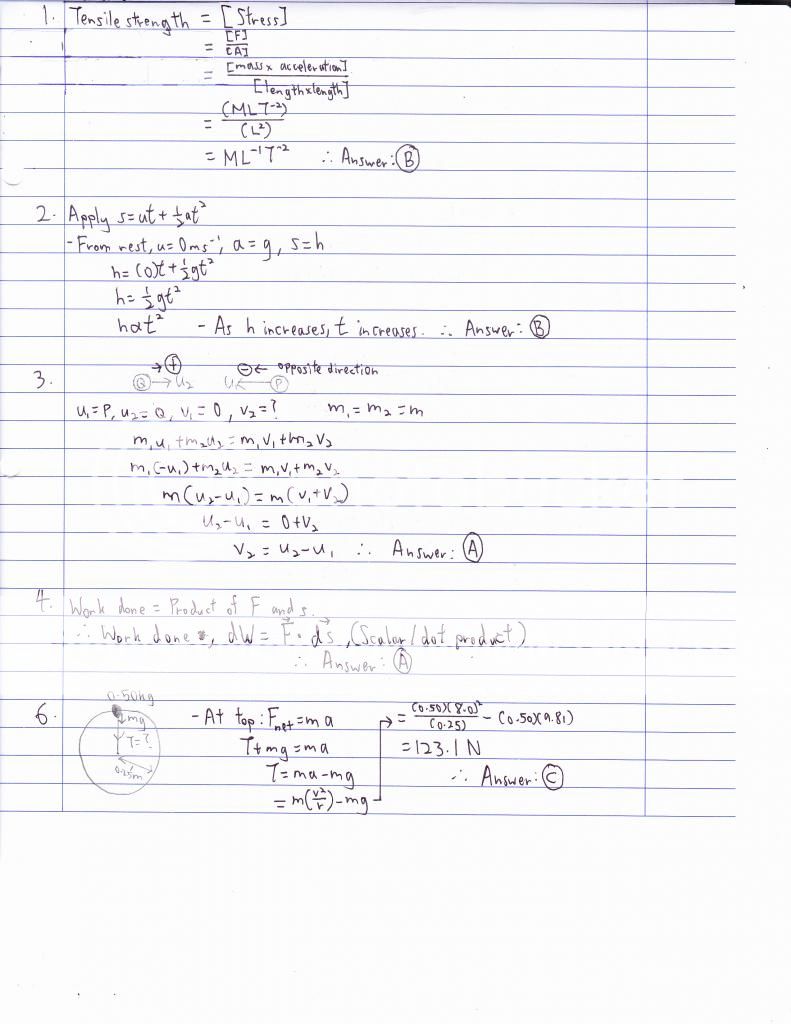 1. Tensile strength = [Stress]
= [F]/[A]
= [mass x acceleration]/[length x length]
= (MLT⁻²)/(L²)
= ML⁻¹T⁻² ∴ Answer: B
2. Apply s = ut + ½at²
- From rest, u = 0ms⁻¹, a = g, s = h
h = (0)t + ½gt²
h = ½gt²
h ∝ t² - As h increases, t increases. ∴ Answer: B
→ + - ← opposite direction
3. Q → u₂ u ← P
u₁ = P, u₂ = Q, v₁ = 0, v₂ = ? m₁ = m₂ = m
m₁u₁ + m₂u₂ = m₁v₁ + m₂v₂
m₁(-u₁) + m₂u₂ = m₁v₁ + m₂v₂
m(u₂ - u₁) = m(v₁ + v₂)
u₂ - u₁ = 0 + v₂
v₂ = u₂ - u₁ ∴ Answer: A
4. Work done = Product of F and s.
∴ Work done, dW = F⃗ • ds⃗, (Scalar/dot product)
∴ Answer: A
0.50kg
mg
T = ?
0.25m
6. - At top: Fnet = ma
T + mg = ma
T = ma - mg
= m(v²/r) - mg
= (0.50)(8.0)²/(0.25) - (0.50)(9.81)
= 123.1 N
∴ Answer: C